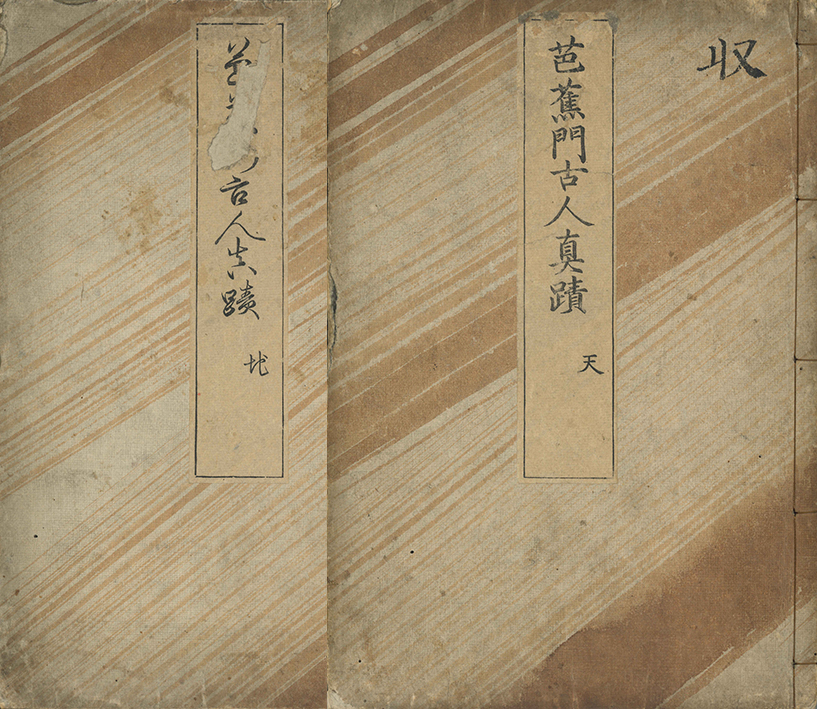 収
芭蕉門古人真蹟
天
古人真蹟
地